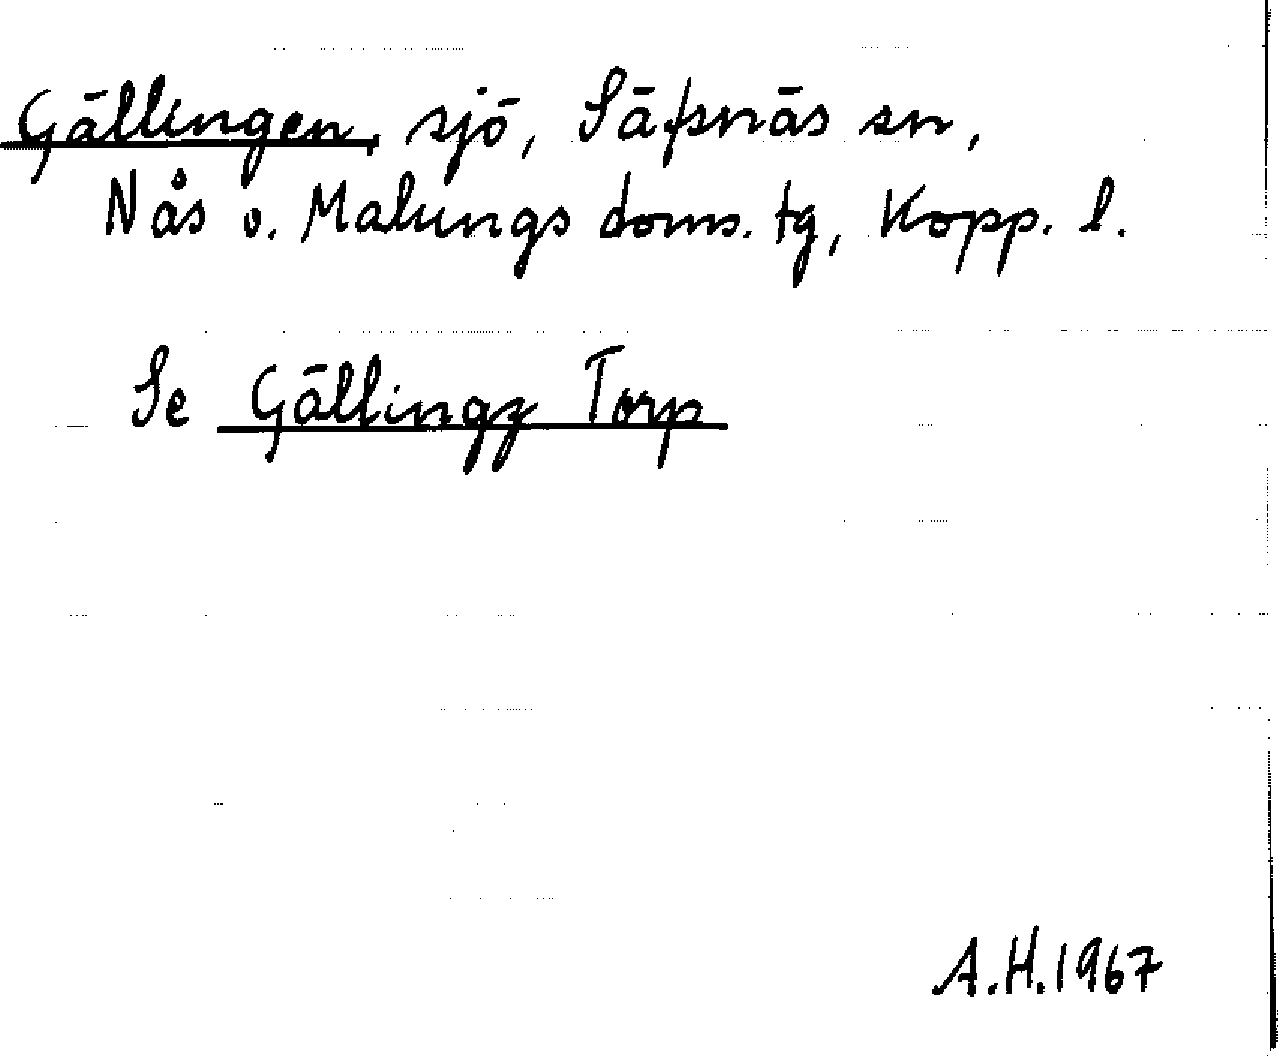 Gällingen, sjö, Säfsnäs sn,
Nås o. Malungs doms. tg, Kopp. l.
Se Gällingz Torp
A.H.1967